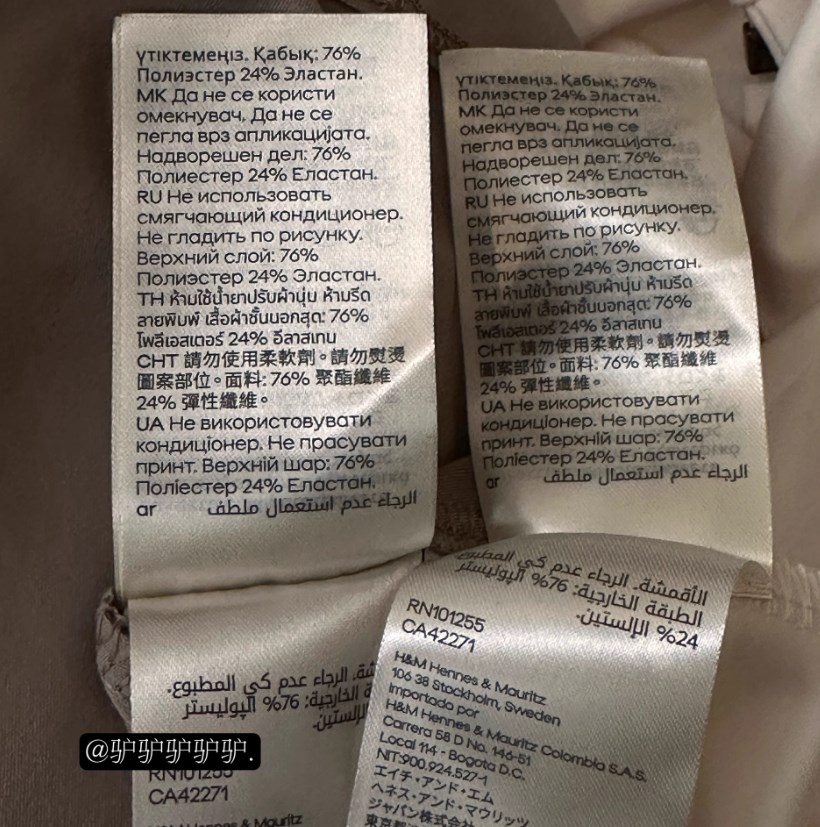 үтіктемеңіз. Қабық: 76%
Полиэстер 24% Эластан.
MK Да не се користи
омекнувач. Да не се
пегла врз апликацијата.
Надворешен дел: 76%
Полиестер 24% Еластан.
RU Не использовать
смягчающий кондиционер.
Не гладить по рисунку.
Верхний слой: 76%
Полиэстер 24% Эластан.
TH ห้ามใช้น้ำยาปรับผ้านุ่ม ห้ามรีด
ลายพิมพ์ เสื้อผ้าชั้นนอกสุด: 76%
โพลีเอสเตอร์ 24% อีลาสเทน
CHT 請勿使用柔軟劑。請勿熨燙
圖案部位。面料: 76% 聚酯纖維
24% 彈性纖維。
UA Не використовувати
кондиціонер. Не прасувати
принт. Верхній шар: 76%
Поліестер 24% Еластан.
ar الرجاء عدم استعمال ملطف
شة. الرجاء عدم كي المطبوع.
ة الخارجية: 76% البوليستر
لإلستين.
RN101255
CA42271
H&M Hennes & Mauritz
үтіктемеңіз. Қабық: 76%
Полиэстер 24% Эластан.
MK Да не се користи
омекнувач. Да не се
пегла врз апликацијата.
Надворешен дел: 76%
Полиестер 24% Еластан.
RU Не использовать
смягчающий кондиционер.
Не гладить по рисунку.
Верхний слой: 76%
Полиэстер 24% Эластан.
TH ห้ามใช้น้ำยาปรับผ้านุ่ม ห้ามรีด
ลายพิมพ์ เสื้อผ้าชั้นนอกสุด: 76%
โพลีเอสเตอร์ 24% อีลาสเทน
CHT 請勿使用柔軟劑。請勿熨燙
圖案部位。面料: 76% 聚酯纖維
24% 彈性纖維。
UA Не використовувати
кондиціонер. Не прасувати
принт. Верхній шар: 76%
Поліестер 24% Еластан.
ar الرجاء عدم استعمال ملطف
الأقمشة. الرجاء عدم كي المطبوع.
الطبقة الخارجية: 76% البوليستر
24% الإلستين.
RN101255
CA42271
H&M Hennes & Mauritz
106 38 Stockholm, Sweden
Importado por
H&M Hennes & Mauritz Colombia S.A.S.
Carrera 58 D No. 146-51
Local 114 - Bogota D.C.
NIT:900.924.527-1
エイチ・アンド・エム
ヘネス・アンド・マウリッツ
ジャパン株式会社
東京都
@驴驴驴驴驴.